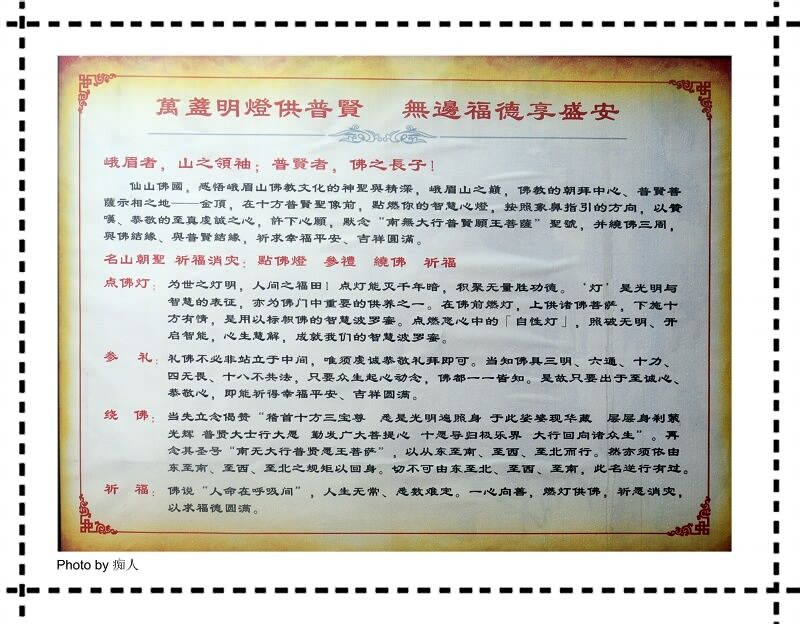 萬盞明燈供普賢 無邊福德享盛安
峨眉者，山之領袖；普賢者，佛之長子！
仙山佛國，感悟峨眉山佛教文化的神聖與精深，峨眉山之巔，佛教的朝拜中心、普賢菩
薩示相之地——金頂，在十方普賢聖像前，點燃你的智慧心燈，按照象鼻指引的方向，以贊
嘆、恭敬的至真虔诚之心，許下心願，默念“南無大行普賢願王菩薩”聖號，并繞佛三周，
與佛結緣、與普賢結緣，祈求幸福平安、吉祥圓滿。
名山朝聖 祈福消灾：點佛燈 參禮 繞佛 祈福
点佛灯：为世之灯明，人间之福田！点灯能灭千年暗，积聚无量胜功德。‘灯’是光明与
智慧的表征，亦为佛门中重要的供养之一。在佛前燃灯，上供诸佛菩萨，下施十
方有情，是用以标帜佛的智慧波罗蜜。点燃您心中的「自性灯」，照破无明、开
启智能，心生慧解，成就我们的智慧波罗蜜。
参 礼：礼佛不必非站立于中间，唯须虔诚恭敬礼拜即可。当知佛具三明、六通、十力、
四无畏、十八不共法，只要众生起心动念，佛都一一皆知。是故只要出于至诚心、
恭敬心，即能祈得幸福平安、吉祥圆满。
绕 佛：当先立念偈赞“稽首十方三宝尊 悉是光明遍照身 于此娑婆现华藏 层层身刹蒙
光辉 普贤大士行大愿 勤发广大菩提心 十愿导归极乐界 大行回向诸众生”。再
念其圣号“南无大行普贤愿王菩萨”，以从东至南、至西、至北而行。然亦须依由
东至南、至西、至北之规矩以回身。切不可由东至北、至西、至南，此名逆行有过。
祈 福：佛说“人命在呼吸间”，人生无常、患数难定。一心向善，燃灯供佛，祈愿消灾，
以求福德圆满。
Photo by 痴人